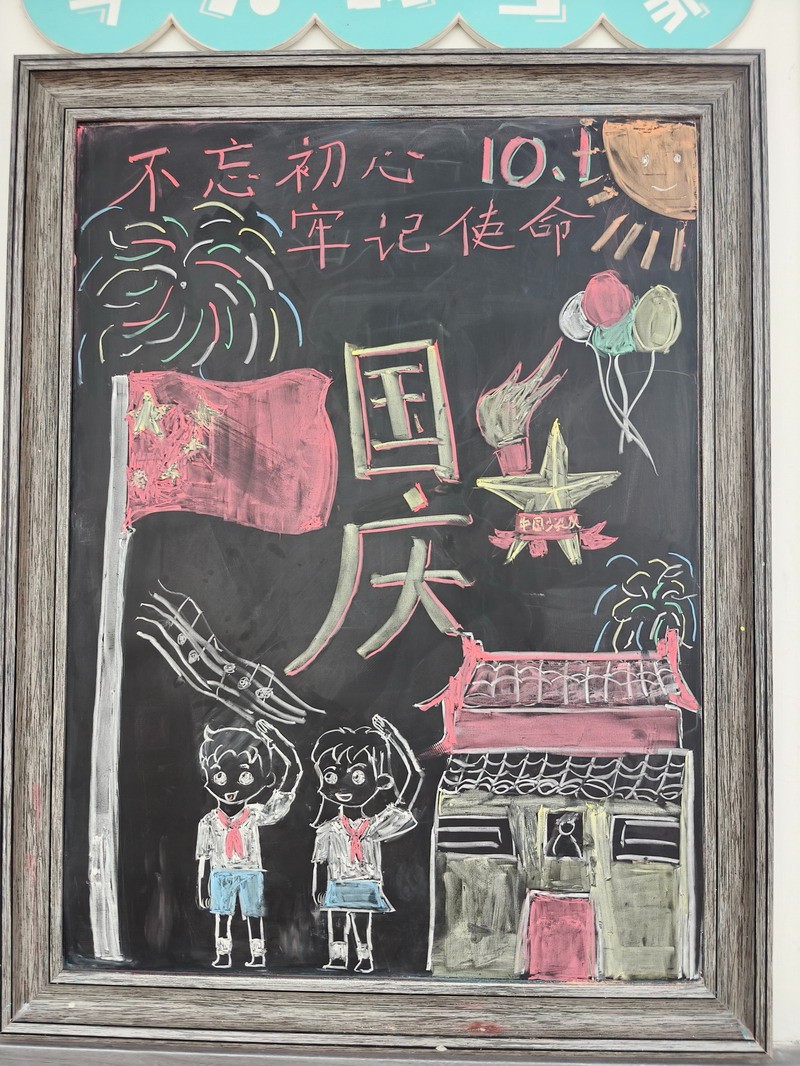 不忘初心 10.1
牢记使命
国
庆
中国少先队